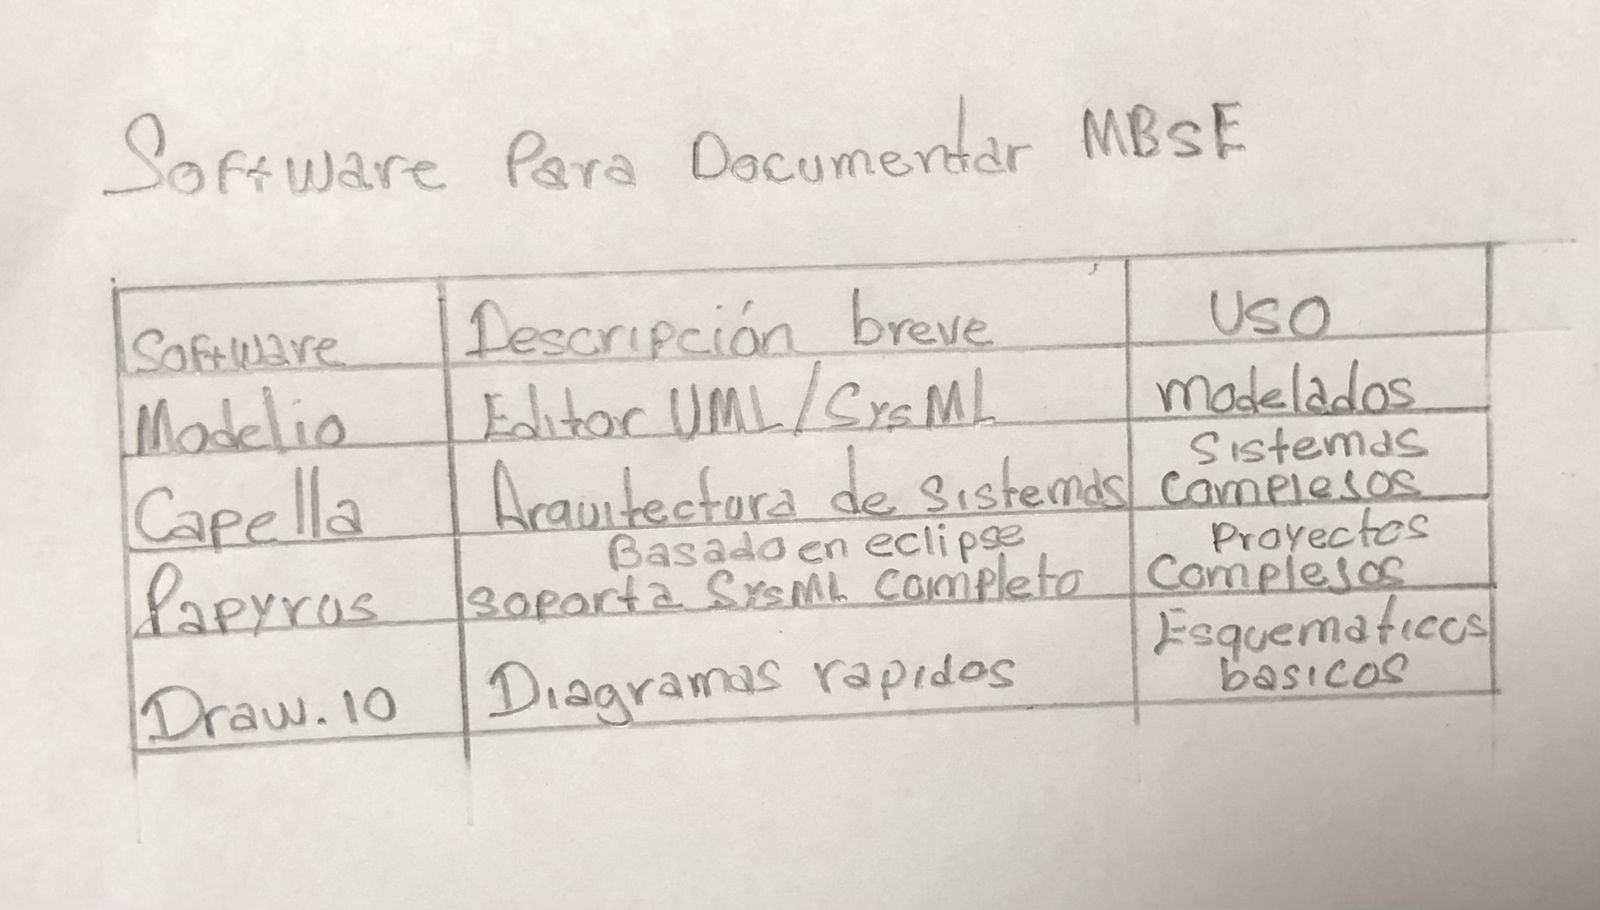 Software Para Documentar MBSE
Software Descripción breve USO
Modelio Editor UML/SysML modelados
Capella Arquitectura de sistemas Sistemas
complejos
Papyrus Basado en eclipse
soporta SysML completo Proyectos
Complejos
Draw.io Diagramas rapidos Esquematicos
basicos